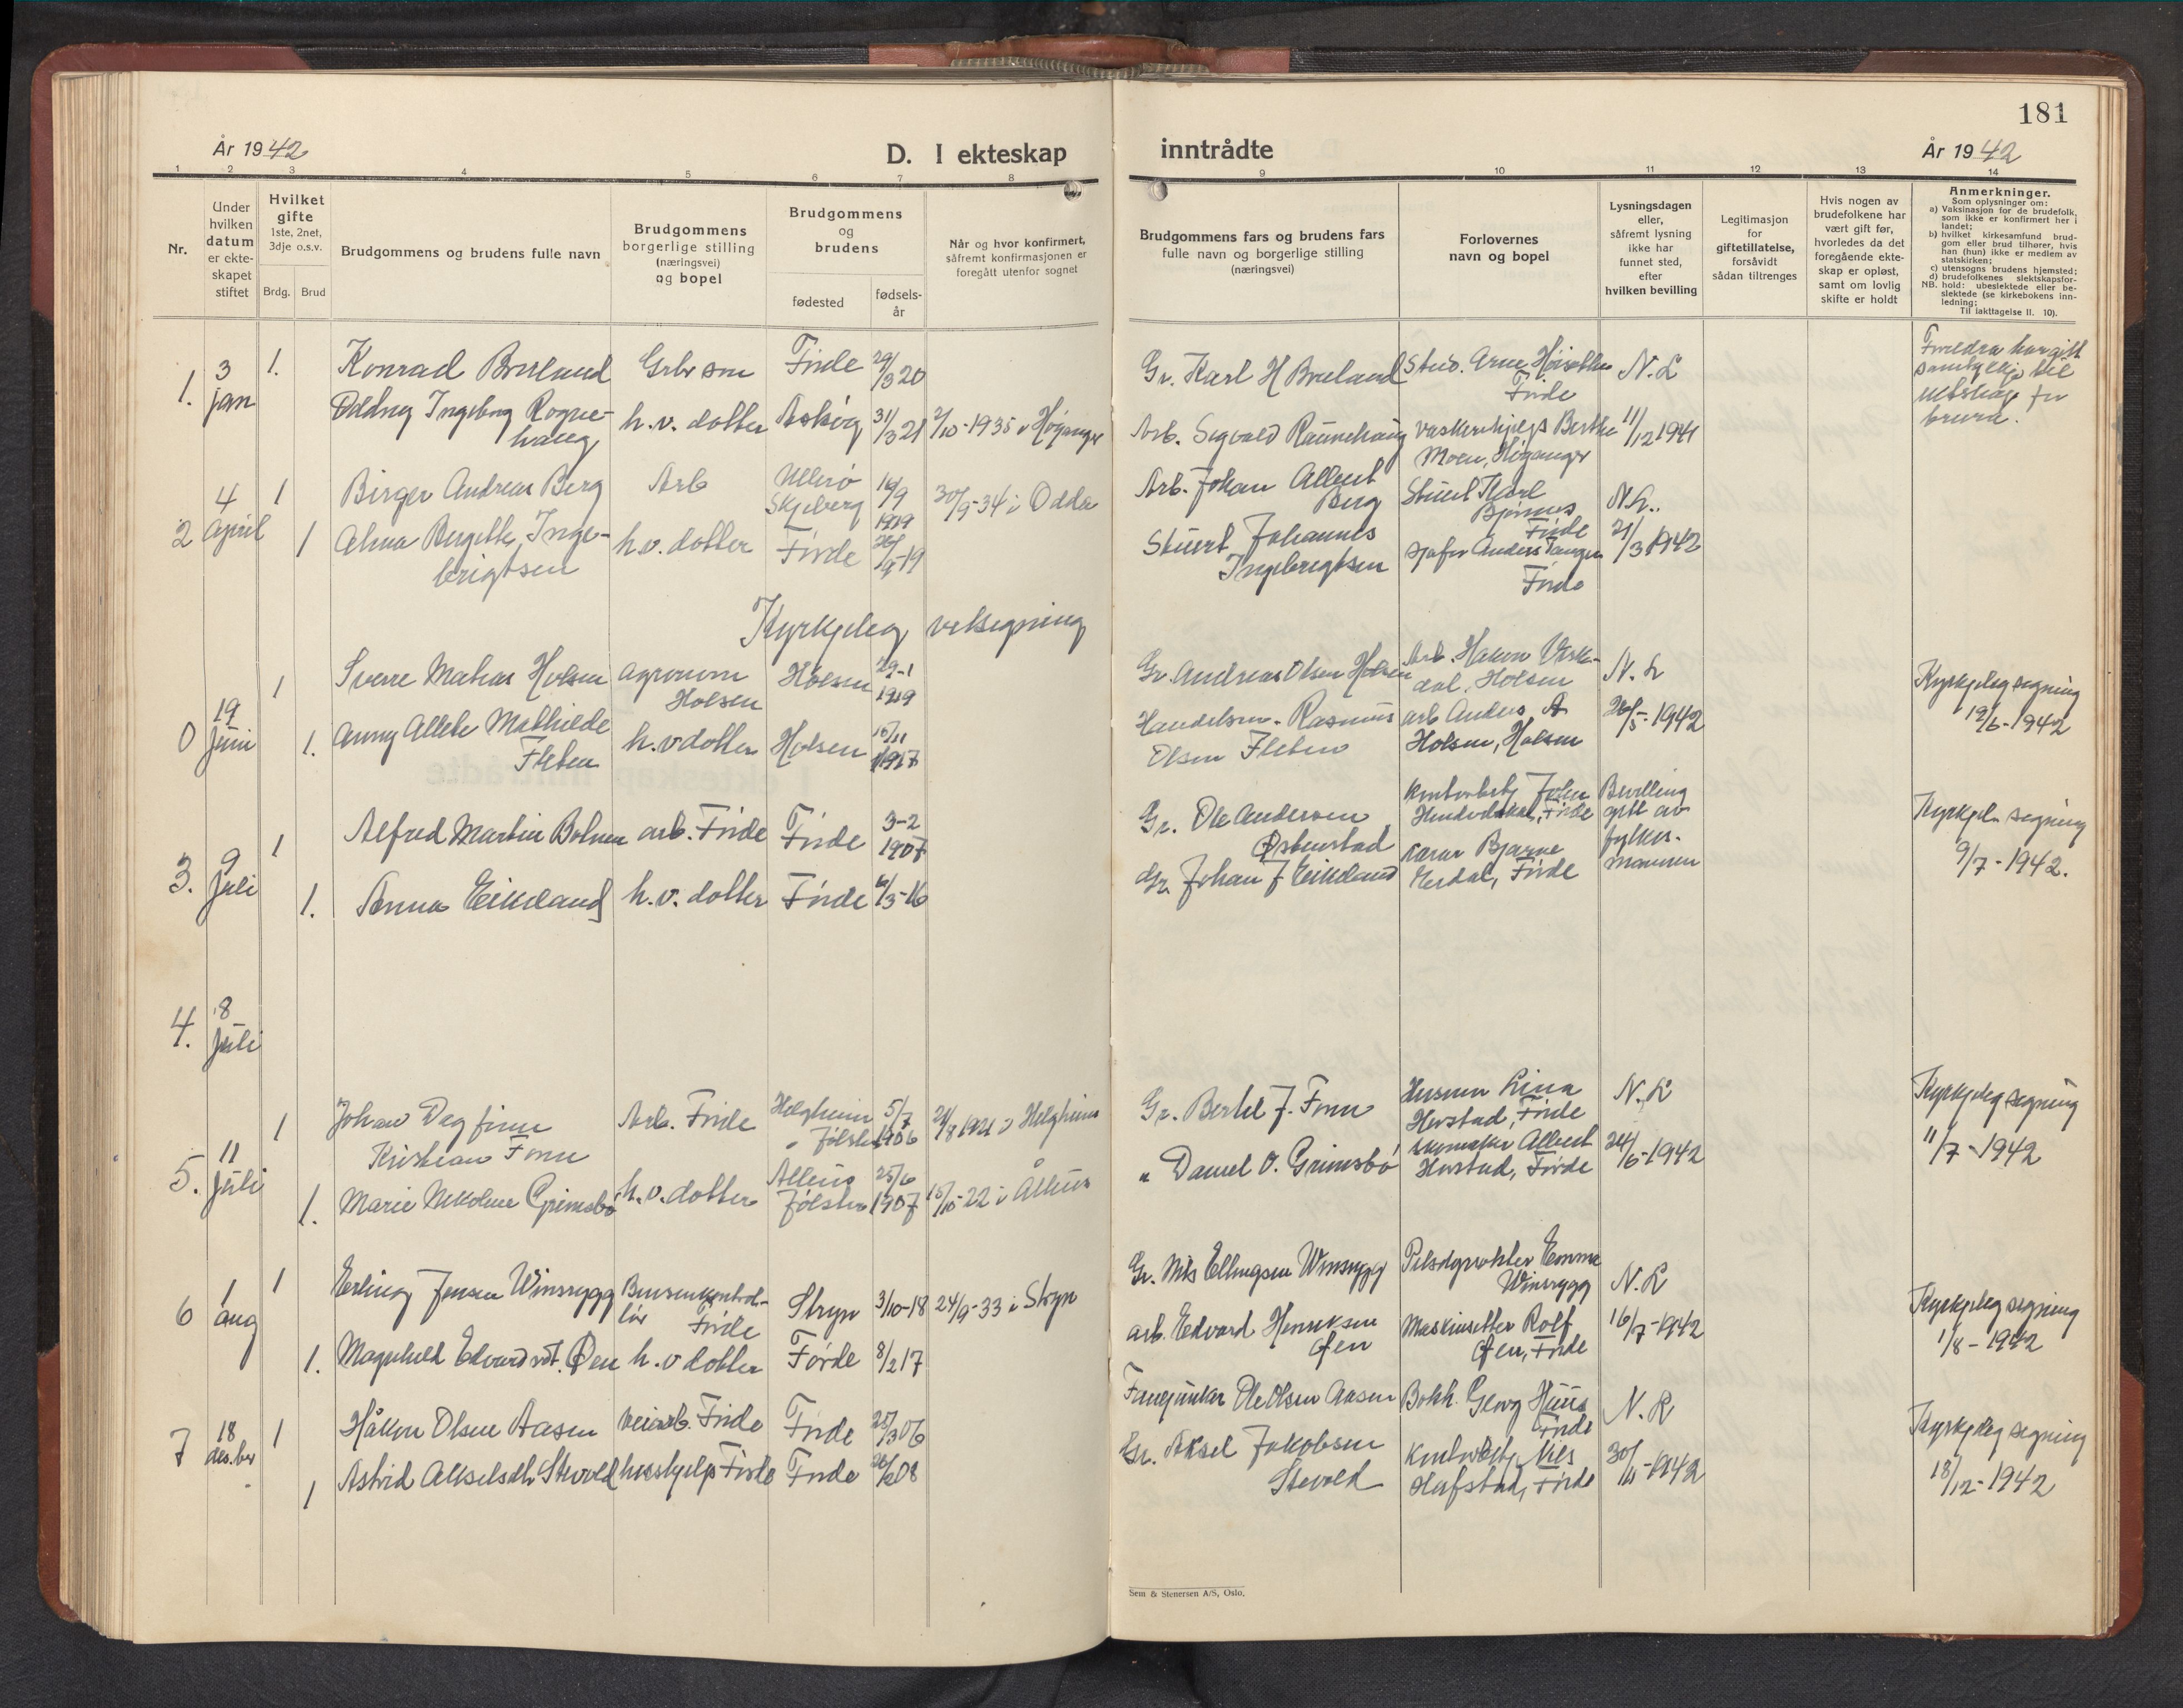 181
År 1942
D. I ekteskap
inntrådte
År 1942
1 2 3 4 5 6 7 8 9 10 11 12 13 14
Nr.
Under
hvilken
datum
er ekte-
skapet
stiftet
Hvilket
gifte
1ste, 2net,
3dje o.s.v.
Brdg. Brud
Brudgommens og brudens fulle navn
Brudgommens
borgerlige stilling
(næringsvei)
og bopel
Brudgommens
og
brudens
fødested
fødsels-
år
Når og hvor konfirmert,
såfremt konfirmasjonen er
foregått utenfor sognet
Brudgommens fars og brudens fars
fulle navn og borgerlige stilling
(næringsvei)
Forlovernes
navn og bopel
Lysningsdagen
eller,
såfremt lysning
ikke har
funnet sted,
efter
hvilken bevilling
Legitimasjon
for
giftetillatelse,
forsåvidt
sådan tiltrenges
Hvis nogen av
brudefolkene har
vært gift før,
hvorledes da det
foregående ekte-
skap er opløst,
samt om lovlig
skifte er holdt
Anmerkninger.
Som oplysninger om:
a) Vaksinasjon for de brudefolk,
som ikke er konfirmert her i
landet;
b) hvilket kirkesamfund brud-
gom eller brud tilhører, hvis
han (hun) ikke er medlem av
statskirken;
c) utensogns brudens hjemsted;
d) brudefolkenes slektskapsfor-
NB. hold: ubeslektede eller be-
slektede (se kirkebokens inn-
ledning;
Til iakttagelse II. 10).
1. 3 jan
1. Konrad Bruland Grbr søn Førde 29/3 20
Oddny Ingeborg Rogne-
haug h.v. dotter Askvog 31/3 21 2/10-1935 i Høyanger
Gr. Karl H Bruland Stud. Arne Høiseth
Førde N.L
Arb. Sigvald Raunehaug vaskerihjelp Berthe
Moen, Høyanger 11/12 1941
Foreldra har gitt
samtykkje til
ekteskap for
brura.
2 4 april
1 Birger Andreas Berg Arb Ullerø
Skjeberg 16/9
1919 30/9-34 i Odda
1 Alma Bergitte Inge-
brigtsen h.v. dotter Førde 26/9-19
Arb. Johan Albert
Berg Stuert Karl
Bjørnes
Førde N.L.
Stuert Johannes
Ingebrigtsen sjåfør Anders Tangen
Førde 21/3 1942
Kyrkjeleg velsegning
0 19 juni
1 Sverre Matias Holsen agronom
Holsen Holsen 29-1
1919
1. Anny Allete Mathilde
Fleten h.v dotter Holsen 15/11
1917
Gr. Andreas Olsen Holsen Arb. Hakon
dal, Holsen N. L
Handelsm. Rasmus
Olsen Fleten arb Anders A
Holsen, Holsen 26/5-1942
Kyrkjeleg segning
19/6-1942
3. 9 juli
1 Alfred Martin Bolsen arb. Førde Førde 3-2
1907
1. Anna Eikeland h.v. dotter Førde 6/3-16
Gr. Ole Andersen
Østenstad kontorbetj John
Førde Bevilling
gitt av
fylkes-
mannen
Gr. Johan J Eikeland Bjarne
Erdal, Førde
Kyrkjel. segning
9/7-1942.
4. 8 juli
5. 11 juli
1 Johan Dagfinn
Kristian Fonn Arb. Førde Helgheim
Jølster 5/7
1906 21/8 1921 i Helgheim
1. Marie Nikoline Grimsbø h.v. dotter Ålhus
Jølster 25/6
1907 15/10-22 i Ålhus
Gr. Bertel J. Fonn Husmor Lina
Herstad, Førde N.L
" Daniel O. Grimsbø skomaker Albert
Herstad, Førde 24/6-1942
Kyrkjeleg segning
11/7-1942
6 1 aug
1 Erling Jensen Winsrygg Bensinkontrol-
lør Førde Stryn 3/10-18 24/9-33 i Stryn
1. Magnhild Edvardsdt. Øen h.v dotter Førde 8/2 17
Gr. Nils Ellingsen Winsrygg Pelsdyrrøkter Emma
Winsrygg N.L
arb. Edvard Henriksen
Øen Maskinsetter Rolf
Øen, Førde 16/7-1942
Kyrkjeleg segning
1/8-1942
7 18 des.ber
1 Håkon Olsen Aasen veiarb. Førde Førde 25/3 06
1 Astrid Akselsdtr. Stevold hushjelp Førde Førde 26/2 08
Fanejunker Ole Olsen Aasen Bokh. Georg Huus
Førde N.L
Gr. Aksel Jakobsen
Stevold Kontorbetj. Nils
Hafstad, Førde 30/11-1942
Kyrkjeleg segning
18/12-1942
Sem & Stenersen A/S, Oslo.